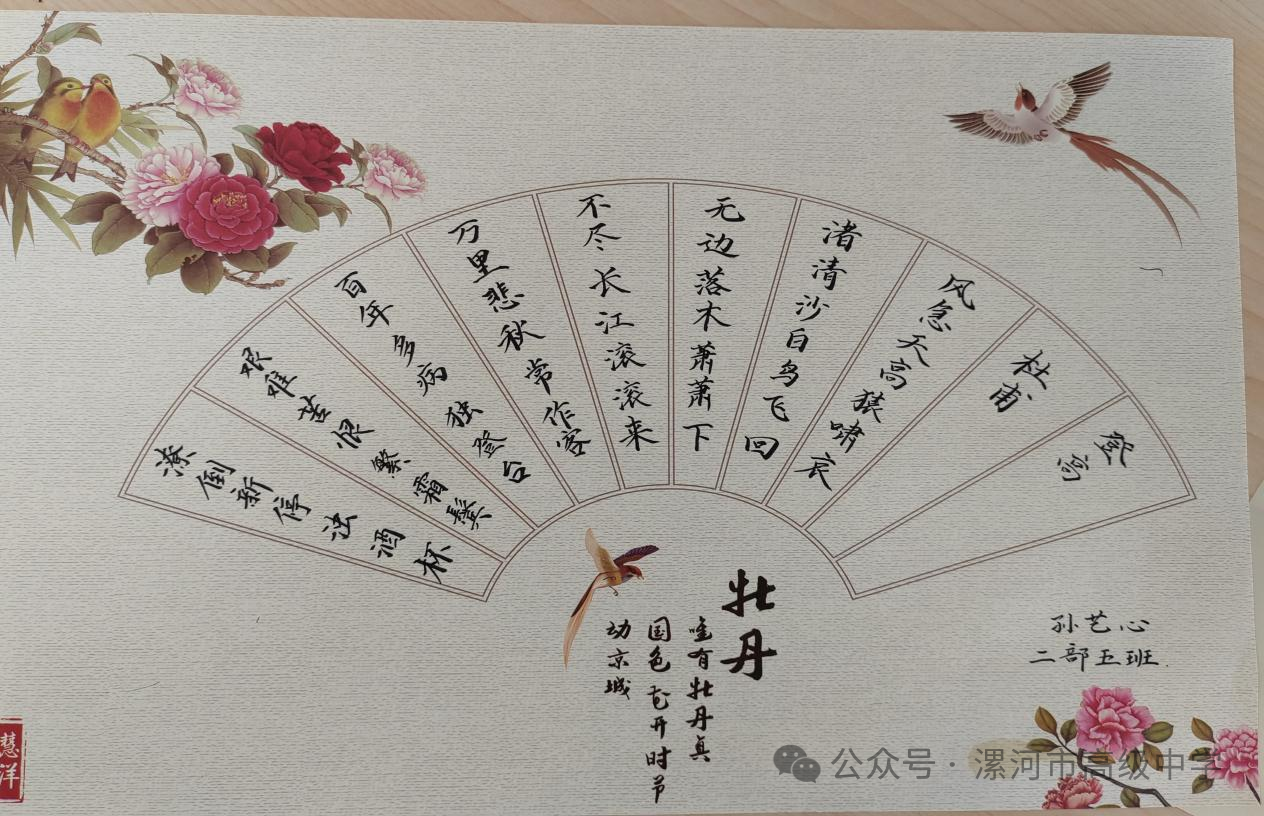 登高
杜甫
风急天高猿啸哀
渚清沙白鸟飞回
无边落木萧萧下
不尽长江滚滚来
万里悲秋常作客
百年多病独登台
艰难苦恨繁霜鬓
潦倒新停浊酒杯
牡丹
唯有牡丹真
国色花开时节
动京城
孙艺心
二部五班
慧洋
公众号·漯河市高级中学